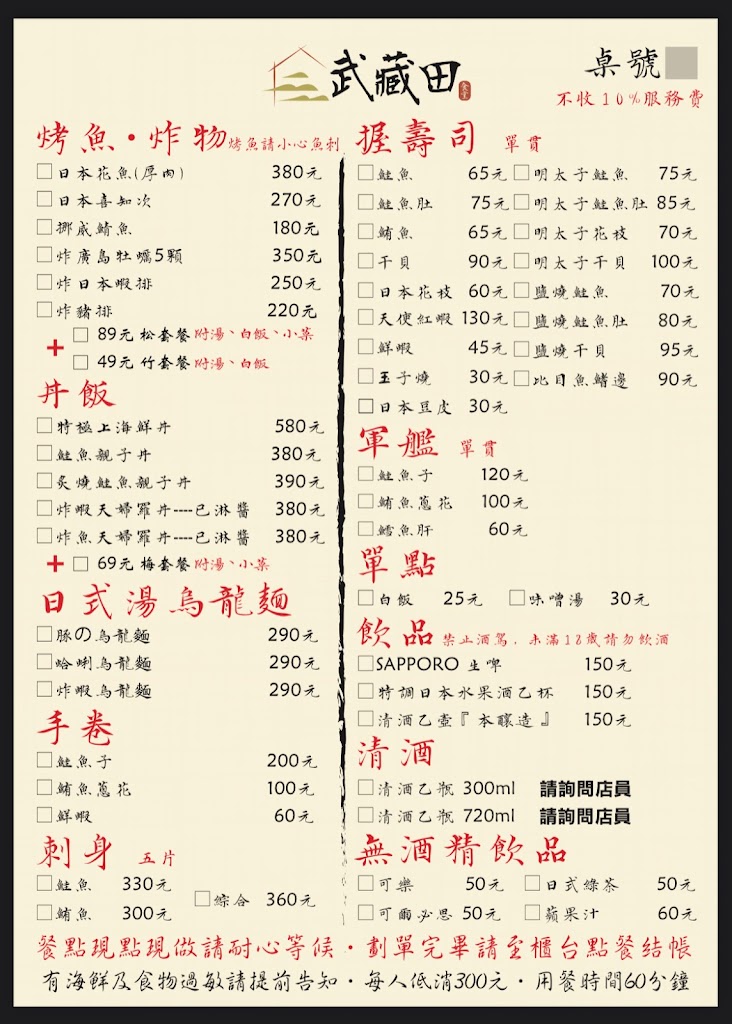 武藏田
食堂
桌號
不收10%服務費
烤魚・炸物 烤魚請小心魚刺
日本花魚(厚肉) 380元
日本喜知次 270元
挪威鯖魚 180元
炸廣島牡蠣5顆 350元
炸日本蝦排 250元
炸豬排 220元
+ 89元 松套餐 附湯、白飯、小菜
49元 竹套餐 附湯、白飯
丼飯
特極上海鮮丼 580元
鮭魚親子丼 380元
炙燒鮭魚親子丼 390元
炸蝦天婦羅丼----已淋醬 380元
炸魚天婦羅丼----已淋醬 380元
+ 69元 梅套餐 附湯、小菜
日式湯烏龍麵
豚の烏龍麵 290元
蛤蜊烏龍麵 290元
炸蝦烏龍麵 290元
手卷
鮭魚子 200元
鮪魚蔥花 100元
鮮蝦 60元
刺身 五片
鮭魚 330元
鮪魚 300元
綜合 360元
握壽司 單貫
鮭魚 65元 明太子鮭魚 75元
鮭魚肚 75元 明太子鮭魚肚 85元
鮪魚 65元 明太子花枝 70元
干貝 90元 明太子干貝 100元
日本花枝 60元 鹽燒鮭魚 70元
天使紅蝦 130元 鹽燒鮭魚肚 80元
鮮蝦 45元 鹽燒干貝 95元
玉子燒 30元 比目魚鰭邊 90元
日本豆皮 30元
軍艦 單貫
鮭魚子 120元
鮪魚蔥花 100元
鱈魚肝 60元
單點
白飯 25元 味噌湯 30元
飲品 禁止酒駕．未滿18歲請勿飲酒
SAPPORO 生啤 150元
特調日本水果酒乙杯 150元
清酒乙壺『本釀造』 150元
清酒
清酒乙瓶 300ml 請詢問店員
清酒乙瓶 720ml 請詢問店員
無酒精飲品
可樂 50元 日式綠茶 50元
可爾必思 50元 蘋果汁 60元
餐點現點現做請耐心等候・劃單完畢請至櫃台點餐結帳
有海鮮及食物過敏請提前告知・每人低消300元・用餐時間60分鐘